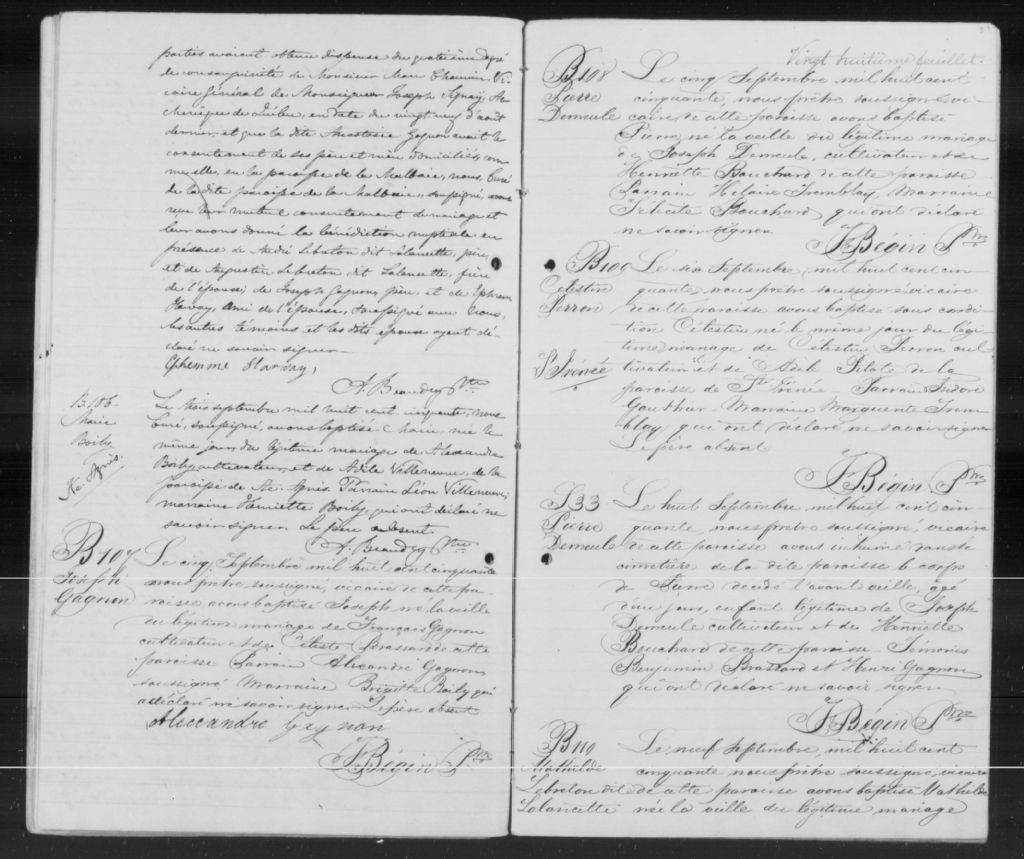 parties avaient obtenu dispense du quatrième degré
de consanguinité de Monsieur Marc Chauvin, Vi-
caire Général de Monseigneur Joseph Signay, Ar-
chevêque de Québec, en date du vingt neuf d'août
dernier, et que la dite Anastasie Gagnon avait le
consentement de ses père et mère domiciliés, com-
me elle, en la paroisse de la Malbaie, nous, Curé
de la dite paroisse de la Malbaie, soussigné, avons
reçu leur mutuel consentement de mariage et
leur avons donné la bénédiction nuptiale en
présence de André Lebreton dit Lalancette, père,
et de Augustin Lebreton dit Lalancette, frère
de l'époux; de Joseph Gagnon, père, et de Ephrem
Harvay, ami de l'épouse, soussigné avec nous,
les autres témoins et les dits époux ayant dé-
claré ne savoir signer.
Ephemme Harvay,
A. Beaudry Ptre
B. 106.
Marie
Boily
Ste Agnès.
Le trois septembre mil huit cent cinquante, nous
Curé, soussigné, avons baptisé Marie, née le
même jour, du légitime mariage de Alexandre
Boily cultivateur, et de Adile Villeneuve, de la
paroisse de Ste. Agnès. Parrain Léon Villeneuve,
marraine Henriette Boily, qui ont déclaré ne
savoir signer. Le père absent
A. Beaudry Ptre
B107
Joseph
Gagnon
Le cinq Septembre mil huit cent cinquante
nous prêtre soussigné, vicaire de cette pa-
roisse, avons baptisé Joseph né la veille
du légitime mariage de François Gagnon
cultivateur et de Céleste Brassard de cette
paroisse Parrain Alexandre Gagnon
soussigné Marraine Brigitte Boily qui
a déclaré ne savoir signer. Le père absent
Aleccandre Gagnon
F Bégin Ptre
Vingt huitième feuillet.
B108
Pierre
Demeule
Le cinq Septembre mil huit cent
cinquante, nous prêtre soussigné, vi-
caire de cette paroisse avons baptisé
Pierre, né la veille du légitime mariage
de Joseph Demeule, cultivateur et de
Henriette Bouchard de cette paroisse.
Parrain Hilaire Tremblay, Marraine
Félicité Bouchard, qui ont déclaré
ne savoir signer
F Bégin Ptre
B109
Célestin
Perron
St Irénée
Le six Septembre, mil huit cent cin
quante, nous prêtre soussigné, vicaire
de cette paroisse avons baptisé sous condi-
tion Célestin né le même jour du légi-
time mariage de Célestin Perron cul
tivateur et de Adile Pilote de la
paroisse de St Irénée. Parrain Isidore
Gauthier. Marraine Marguerite Trem
blay, qui ont déclaré ne savoir signer
Le père absent
F Bégin Ptre
S33
Pierre
Demeule
Le huit Septembre mil huit cent cin-
quante, nous prêtre soussigné, vicaire
de cette paroisse avons inhumé dans le
cimetière de la dite paroisse le corps
de Pierre décédé l'avant veille, âgé
d'un jour, enfant légitime de Joseph
Demeule cultivateur et de Henriette
Bouchard de cette paroisse. Témoins
Benjamin Brassard et Henri Gagnon
qui ont déclaré ne savoir signer
F Bégin Ptre
B110
Mathilde
Lebreton dit
Lalancette
Le neuf Septembre, mil huit cent
cinquante nous prêtre soussigné, vicaire
de cette paroisse avons baptisé Mathilde
née la veille du légitime mariage